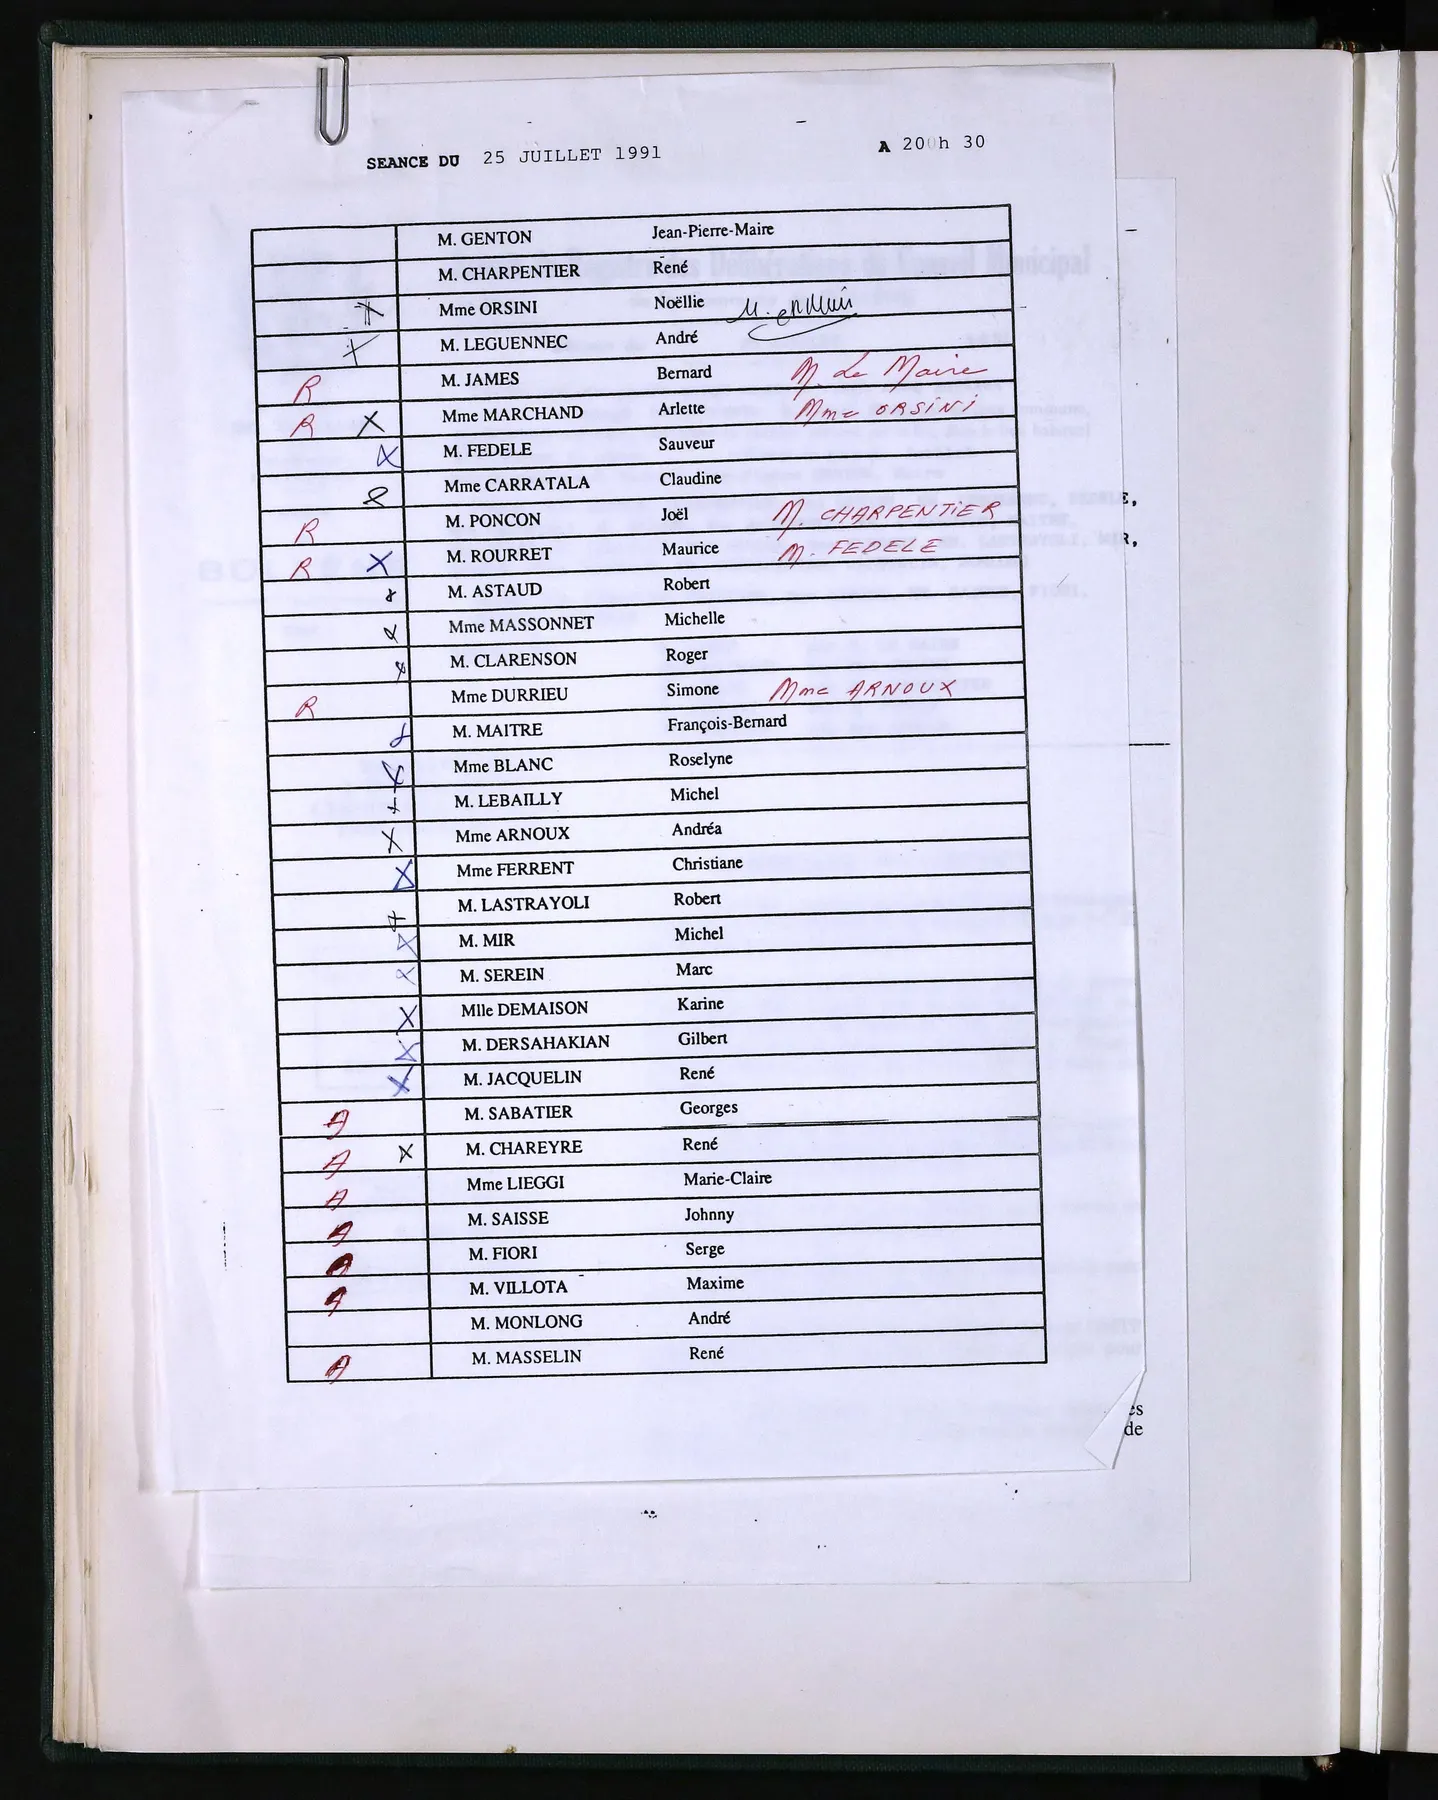 SEANCE DU 25 JUILLET 1991 A 20 h 30
M. GENTON Jean-Pierre-Maire
M. CHARPENTIER René
Mme ORSINI Noëllie
M. LEGUENNEC André
R M. JAMES Bernard M. Le Maire
R X Mme MARCHAND Arlette Mme ORSINI
M. FEDELE Sauveur
Mme CARRATALA Claudine
R M. PONCON Joël M. CHARPENTIER
R X M. ROURRET Maurice M. FEDELE
M. ASTAUD Robert
Mme MASSONNET Michelle
M. CLARENSON Roger
R Mme DURRIEU Simone Mme ARNOUX
M. MAITRE François-Bernard
Mme BLANC Roselyne
M. LEBAILLY Michel
X Mme ARNOUX Andréa
X Mme FERRENT Christiane
M. LASTRAYOLI Robert
M. MIR Michel
M. SEREIN Marc
X Mlle DEMAISON Karine
X M. DERSAHAKIAN Gilbert
X M. JACQUELIN René
A M. SABATIER Georges
A X M. CHAREYRE René
A Mme LIEGGI Marie-Claire
A M. SAISSE Johnny
A M. FIORI Serge
A M. VILLOTA Maxime
M. MONLONG André
A M. MASSELIN René
es
de